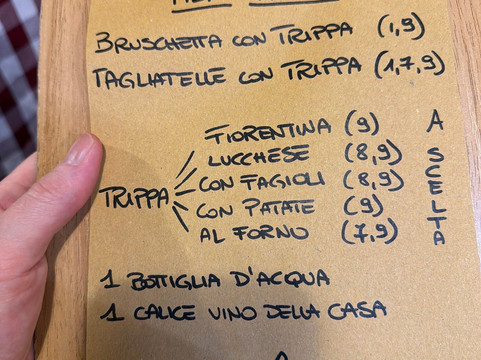 BRUSCHETTA CON TRIPPA (1,9)
TAGLIATELLE CON TRIPPA (1,7,9)
TRIPPA
FIORENTINA (9)
LUCCHESE (8,9)
CON FAGIOLI (8,9)
CON PATATE (9)
AL FORNO (7,9)
A SCELTA
1 BOTTIGLIA D'ACQUA
1 CALICE VINO DELLA CASA